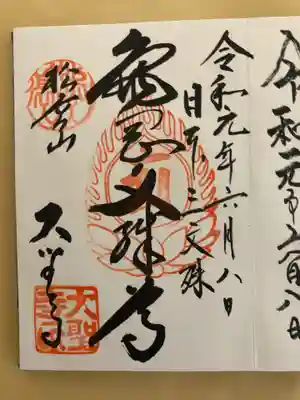 令和元年六月八日
令和元年六月八日
日本三文殊
龜岡文殊尊
松高山
大聖寺
大聖
寺印